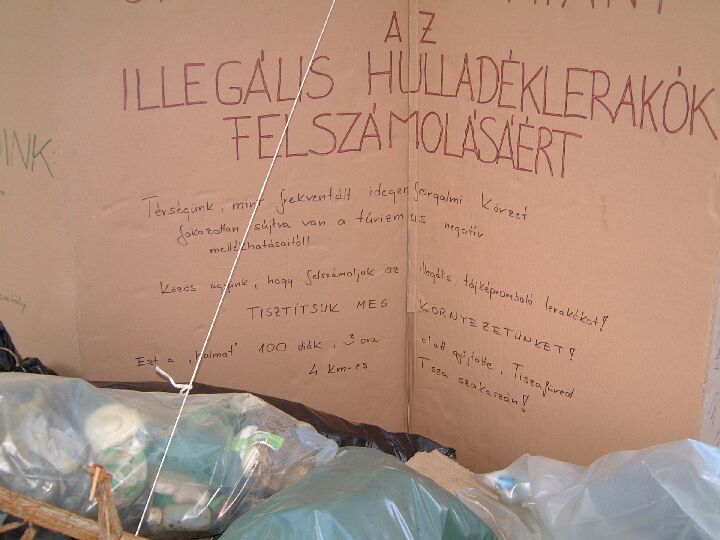 AZ
ILLEGÁLIS HULLADÉKLERAKÓK
FELSZÁMOLÁSÁÉRT
Térségünk, mint frekventált idegenforgalmi körzet
fokozottan sújtva van a túrizmus negatív
mellékhatásaitól!
Közös ügyünk, hogy felszámoljuk az illegális, tájképromboló lerakókat!
TISZTÍTSUK MEG KÖRNYEZETÜNKET!
Ezt a "halmot" 100 diák, 3 óra alatt gyűjtötte, Tiszafüred
4 km-es Tisza szakaszán!
INK: